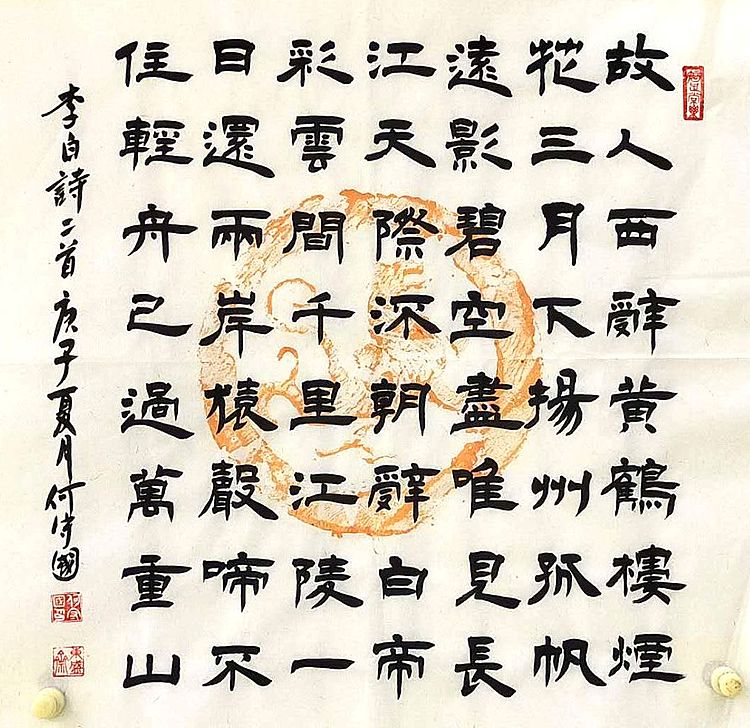 故人西辤黄鶴樓煙
花三月下揚州孤帆
遠影碧空盡唯見長
江天際深朝辤白帝
彩雲間千里江陵一
日還兩岸猿聲啼不
住輕舟已過萬重山
李白詩二首庚子夏月何守國
知足常樂